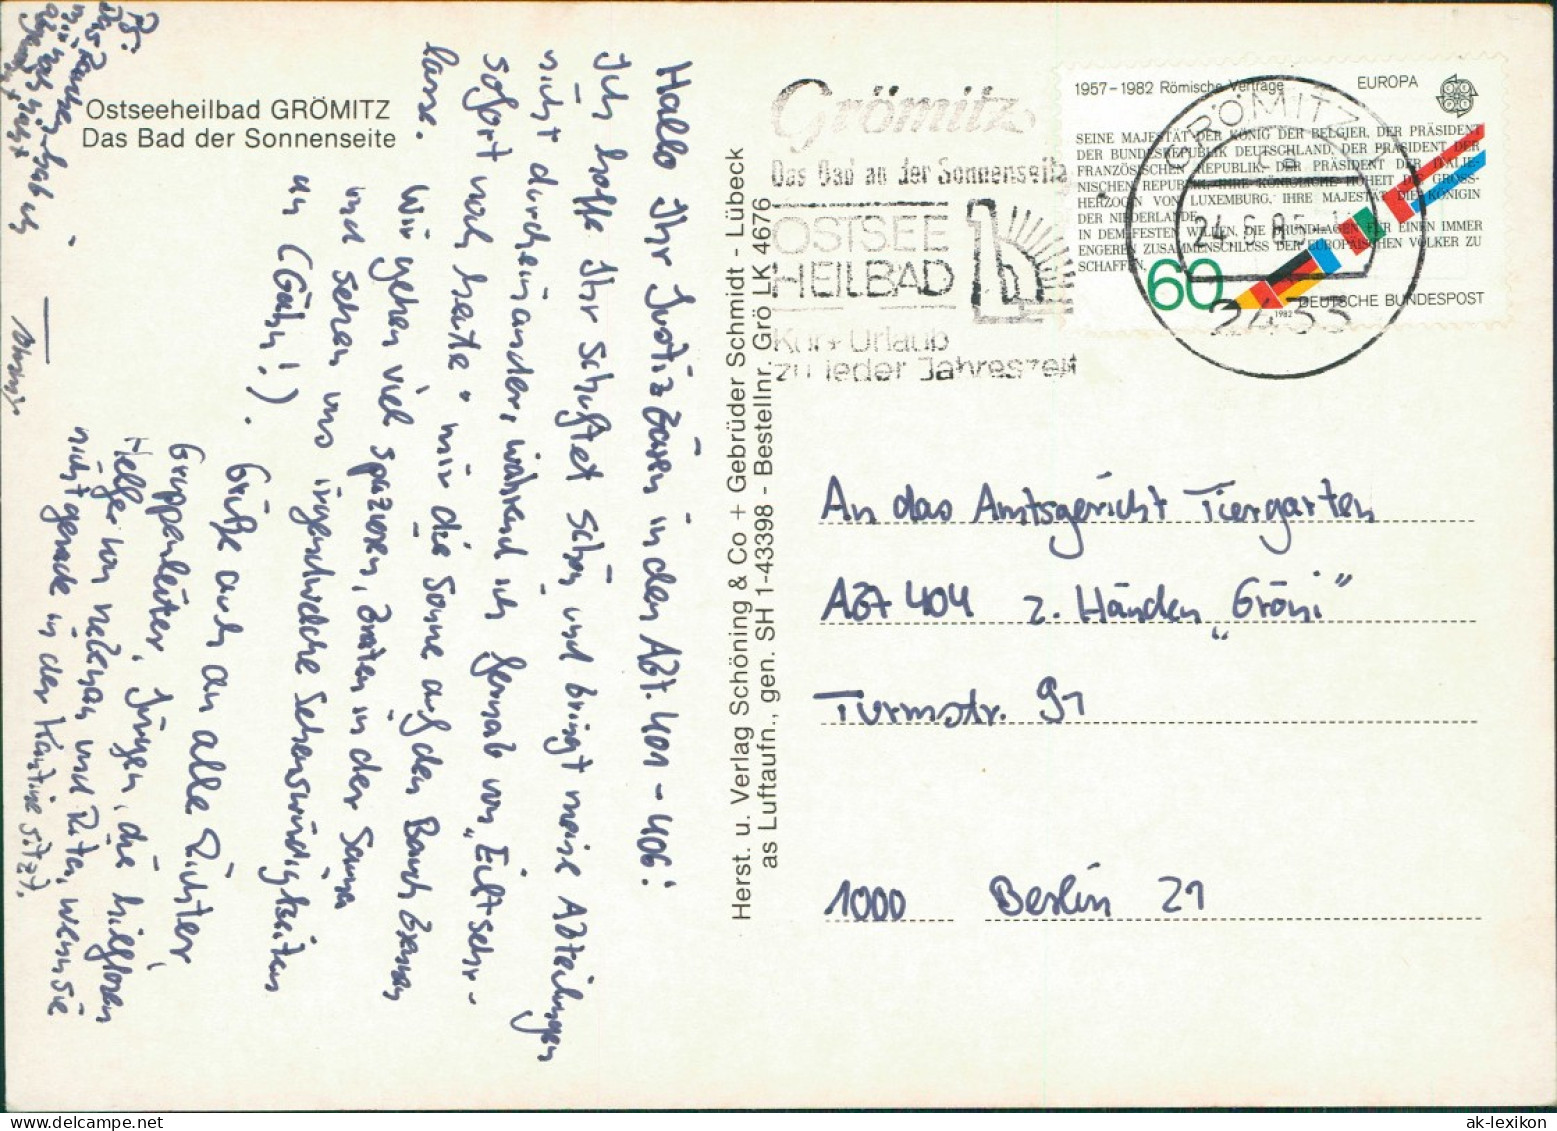 Ostseeheilbad GRÖMITZ
Das Bad der Sonnenseite
Hallo Ihr Justizbären in den Abt. 401 - 406!
Ich hoffe Ihr schuftet schön und bringt meine Abteilungen
nicht durcheinander, während ich fernab von „Eilt sehr -
sofort noch heute" mir die Sonne auf den Bauch brennen
lasse.
Wir gehen viel spazieren, braten in der Sonne
und sehen uns irgendwelche Sehenswürdigkeiten
an (Gähn!).
Grüße auch an alle Richter
Gruppenleiter, Jürgen, die hilflosen
Helfer von nebenan und Rita, wenn sie
nicht gerade in der Kantine sitzt.
PS:
Das Rauchen hab ich
mir noch nicht
Herst. u. Verlag Schöning & Co + Gebrüder Schmidt - Lübeck
as Luftaufn., gen. SH 1-43398 - Bestellnr. Grö LK 4676
Grömitz
Das Bad an der Sonnenseite
OSTSEE
HEILBAD
Kur + Urlaub
zu jeder Jahreszeit
1957–1982 Römische Verträge
EUROPA
SEINE MAJESTÄT DER KÖNIG DER BELGIER, DER PRÄSIDENT
DER BUNDESREPUBLIK DEUTSCHLAND, DER PRÄSIDENT DER
FRANZÖSISCHEN REPUBLIK, DER PRÄSIDENT DER ITALIE-
NISCHEN REPUBLIK, IHRE KÖNIGLICHE HOHEIT DIE GROSS-
HERZOGIN VON LUXEMBURG, IHRE MAJESTÄT DIE KÖNIGIN
DER NIEDERLANDE,
IN DEM FESTEN WILLEN, DIE GRUNDLAGEN FÜR EINEN IMMER
ENGEREN ZUSAMMENSCHLUSS DER EUROPÄISCHEN VÖLKER ZU
SCHAFFEN,
60
1982
DEUTSCHE BUNDESPOST
GRÖMITZ
24.6.85
2433
An das Amtsgericht Tiergarten
Abt 404 z. Händen „Gröni"
Turmstr. 91
1000 Berlin 21
delcampe.net
ak-lexikon